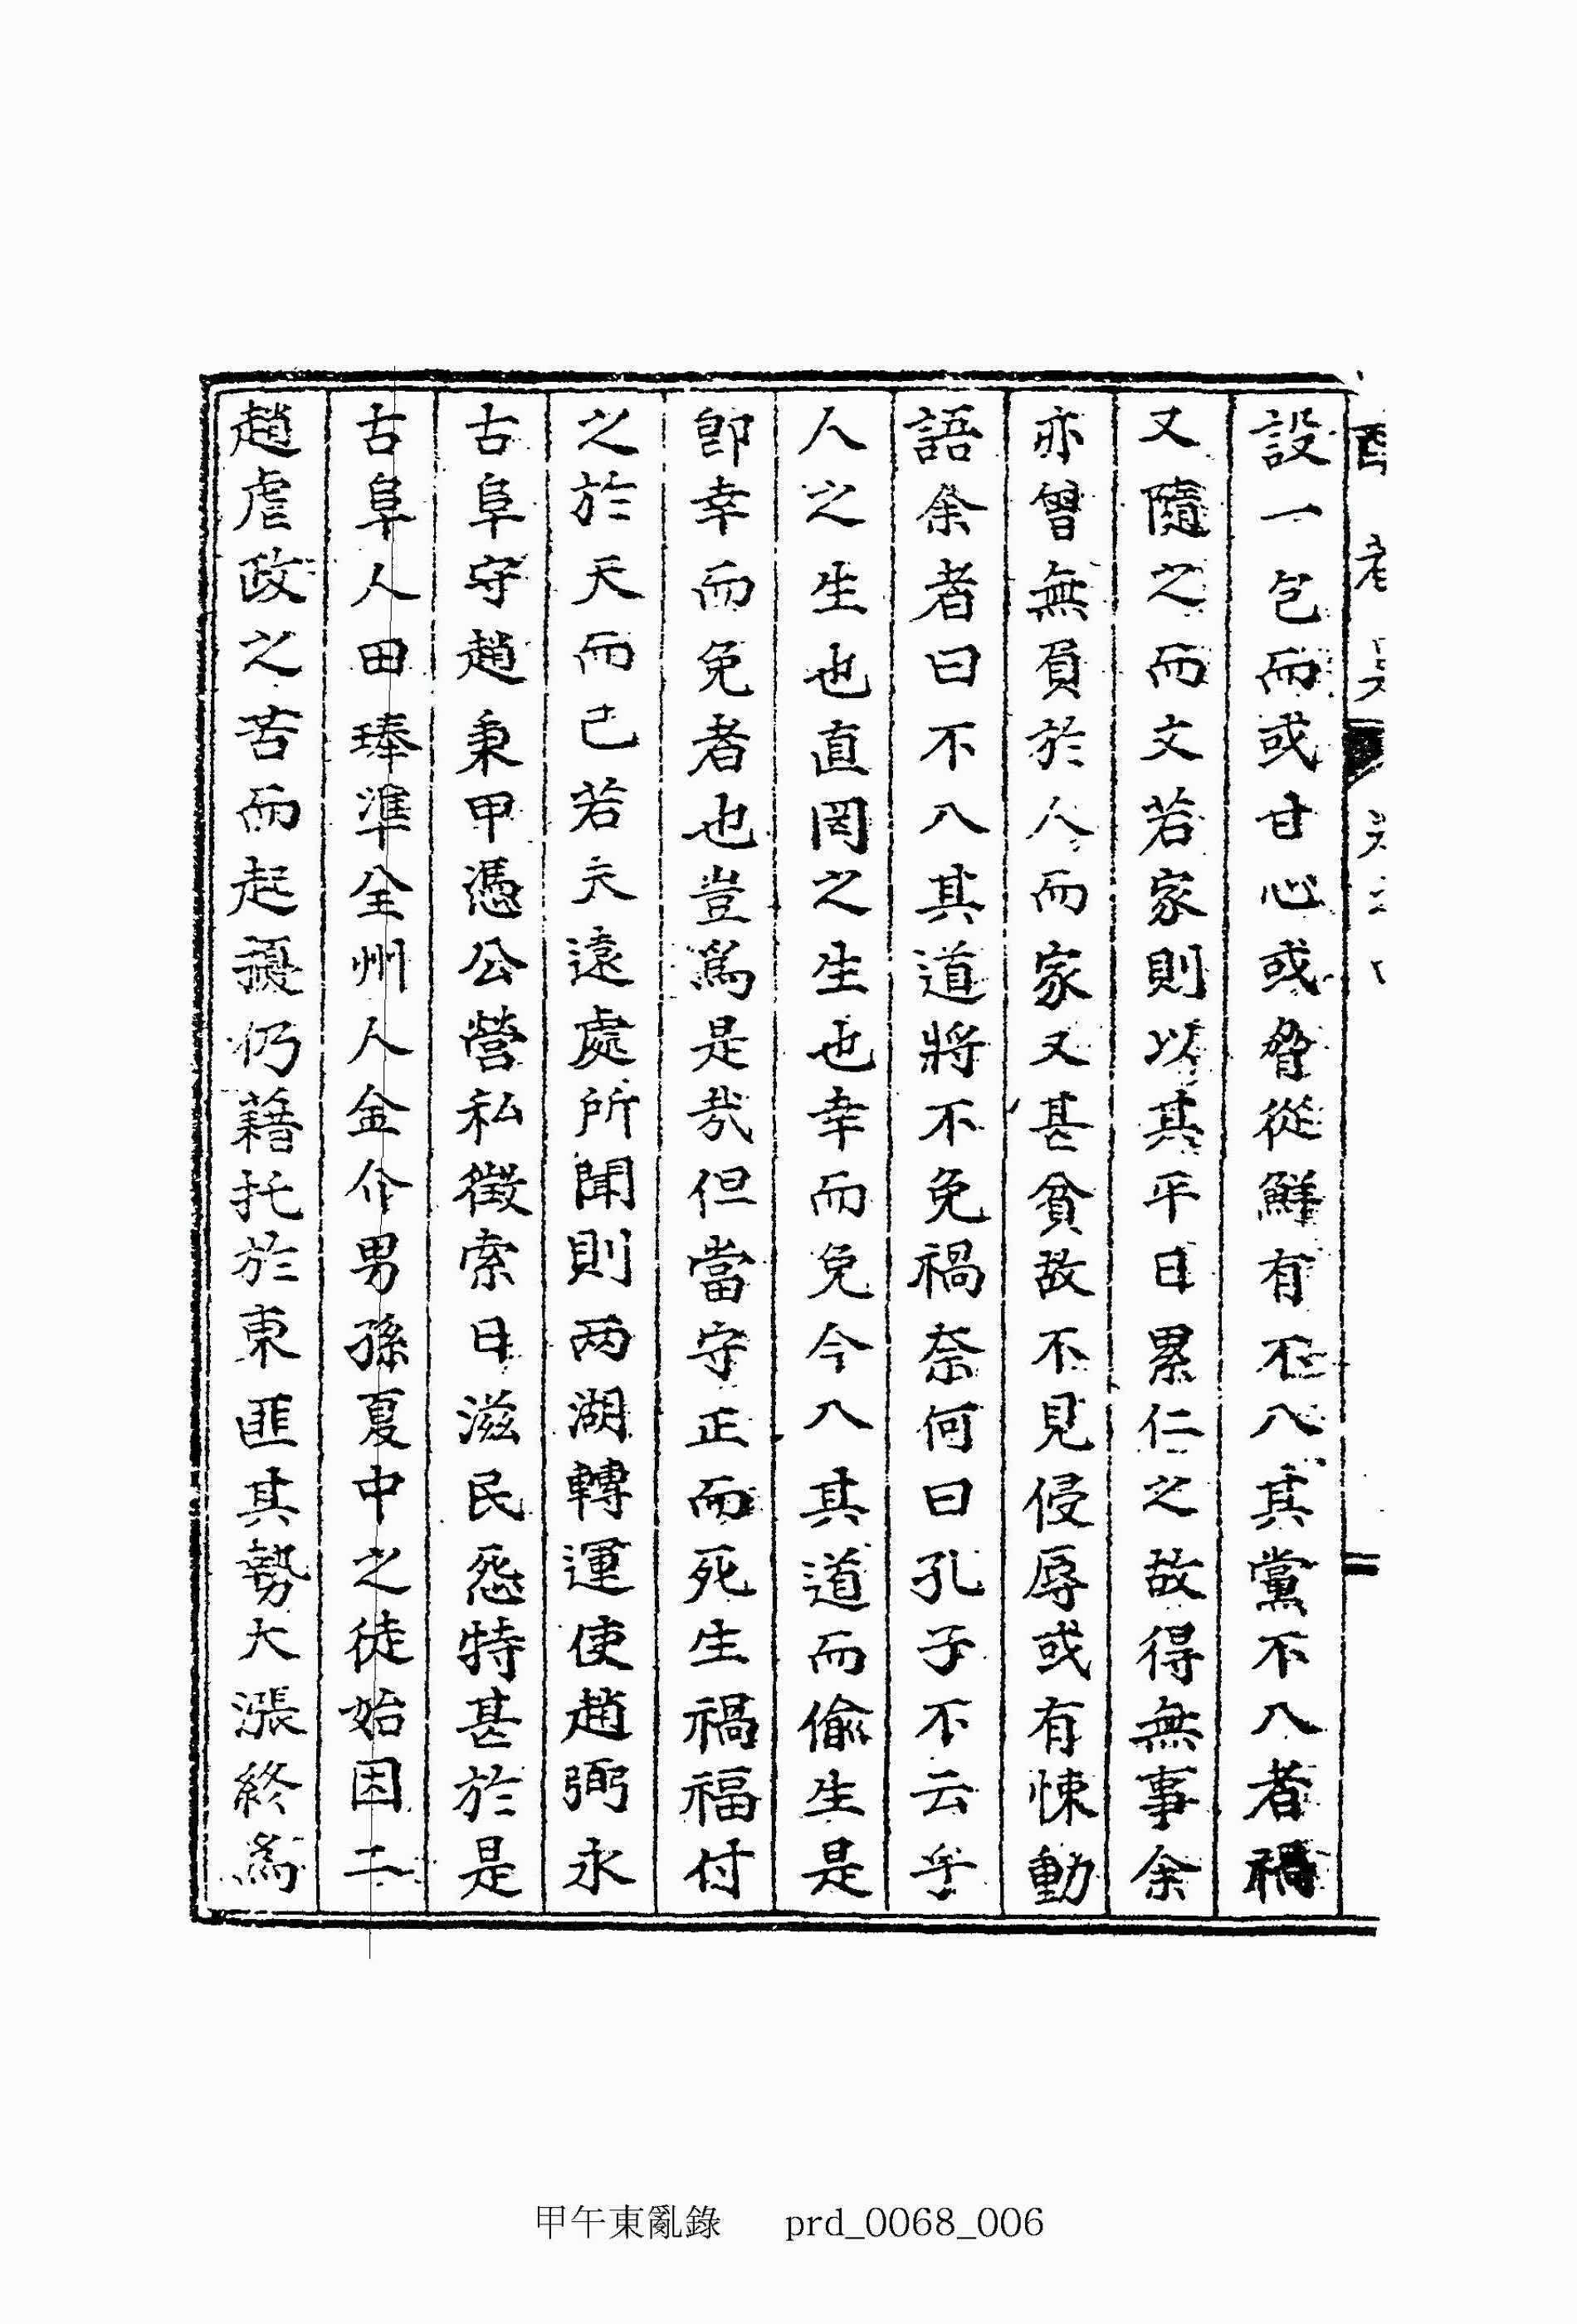 設一包而或甘心或脅從鮮有不入其黨不入者禍
又隨之而文若家則以其平日累仁之故得無事余
亦曾無負於人而家又甚貧故不見侵辱或有悚動
語余者曰不入其道將不免禍奈何曰孔子不云乎
人之生也直罔之生也幸而免今入其道而偷生是
卽幸而免者也豈爲是哉但當守正而死生禍福付
之於天而已若夫遠處所聞則两湖轉運使趙弼永
古阜守趙秉甲憑公營私徵索日滋民怨特甚於是
古阜人田琫準全州人金介男孫夏中之徒始因二
趙虐政之苦而起擾仍藉托於東匪其勢大漲終爲
甲午東亂錄 prd_0068_006